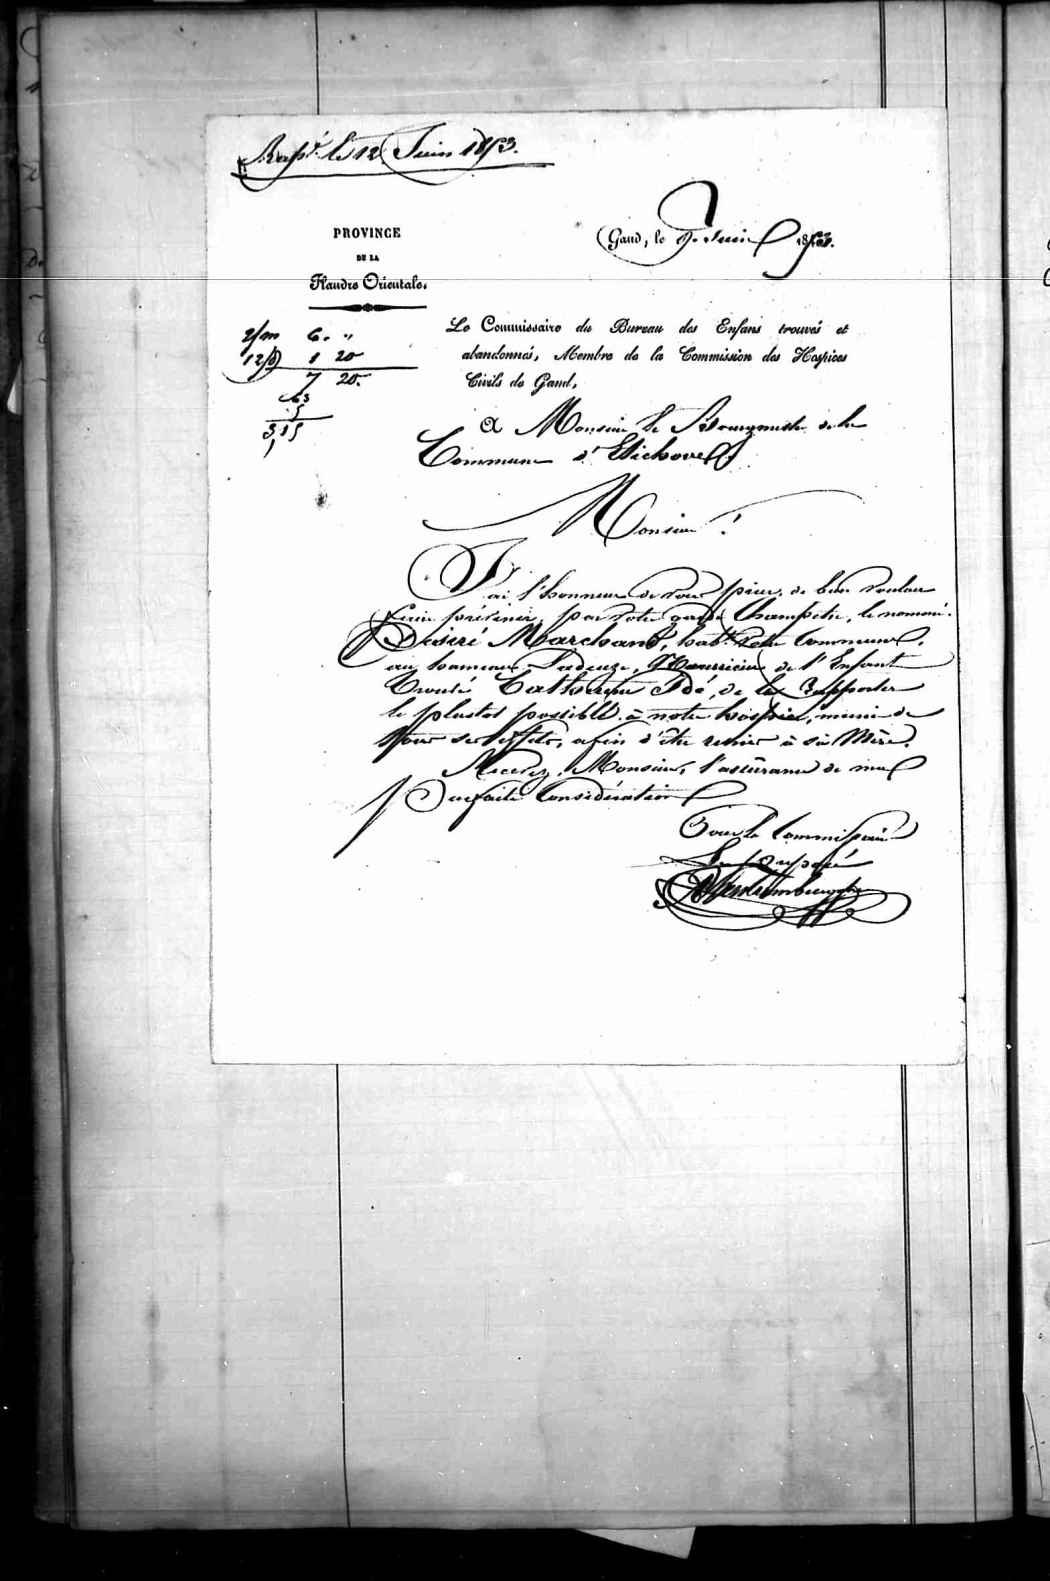 Rapp.t le 12 Juin 1853.
PROVINCE
DE LA
Flandre Orientale.
Gand, le 9 Juin 1853.
2/m 6. "
12/d 1 20
7 20.
63
5
3,15
Le Commissaire du Bureau des Enfans trouvés et
abandonnés, Membre de la Commission des Hospices
Civils de Gand,
A Monsieur le Bourgmestre de la
Commune d'Etichove
Monsieur !
J'ai l'honneur de vous prier de bien vouloir
faire prévenir, par votre garde Champetre, le nommé
Désiré Marchand, habt. votre Commune,
au hameau Ladeuze, Nourricier de l'Enfant
Trouvé Catherine Idé, de la rapporter
le plustot possible à notre hospice, munie de
tous ses effets, afin d'être remise à sa Mère.
Recevez, Monsieur, l'assurance de ma
parfaite Considération
Pour le Commissaire
Le préposé